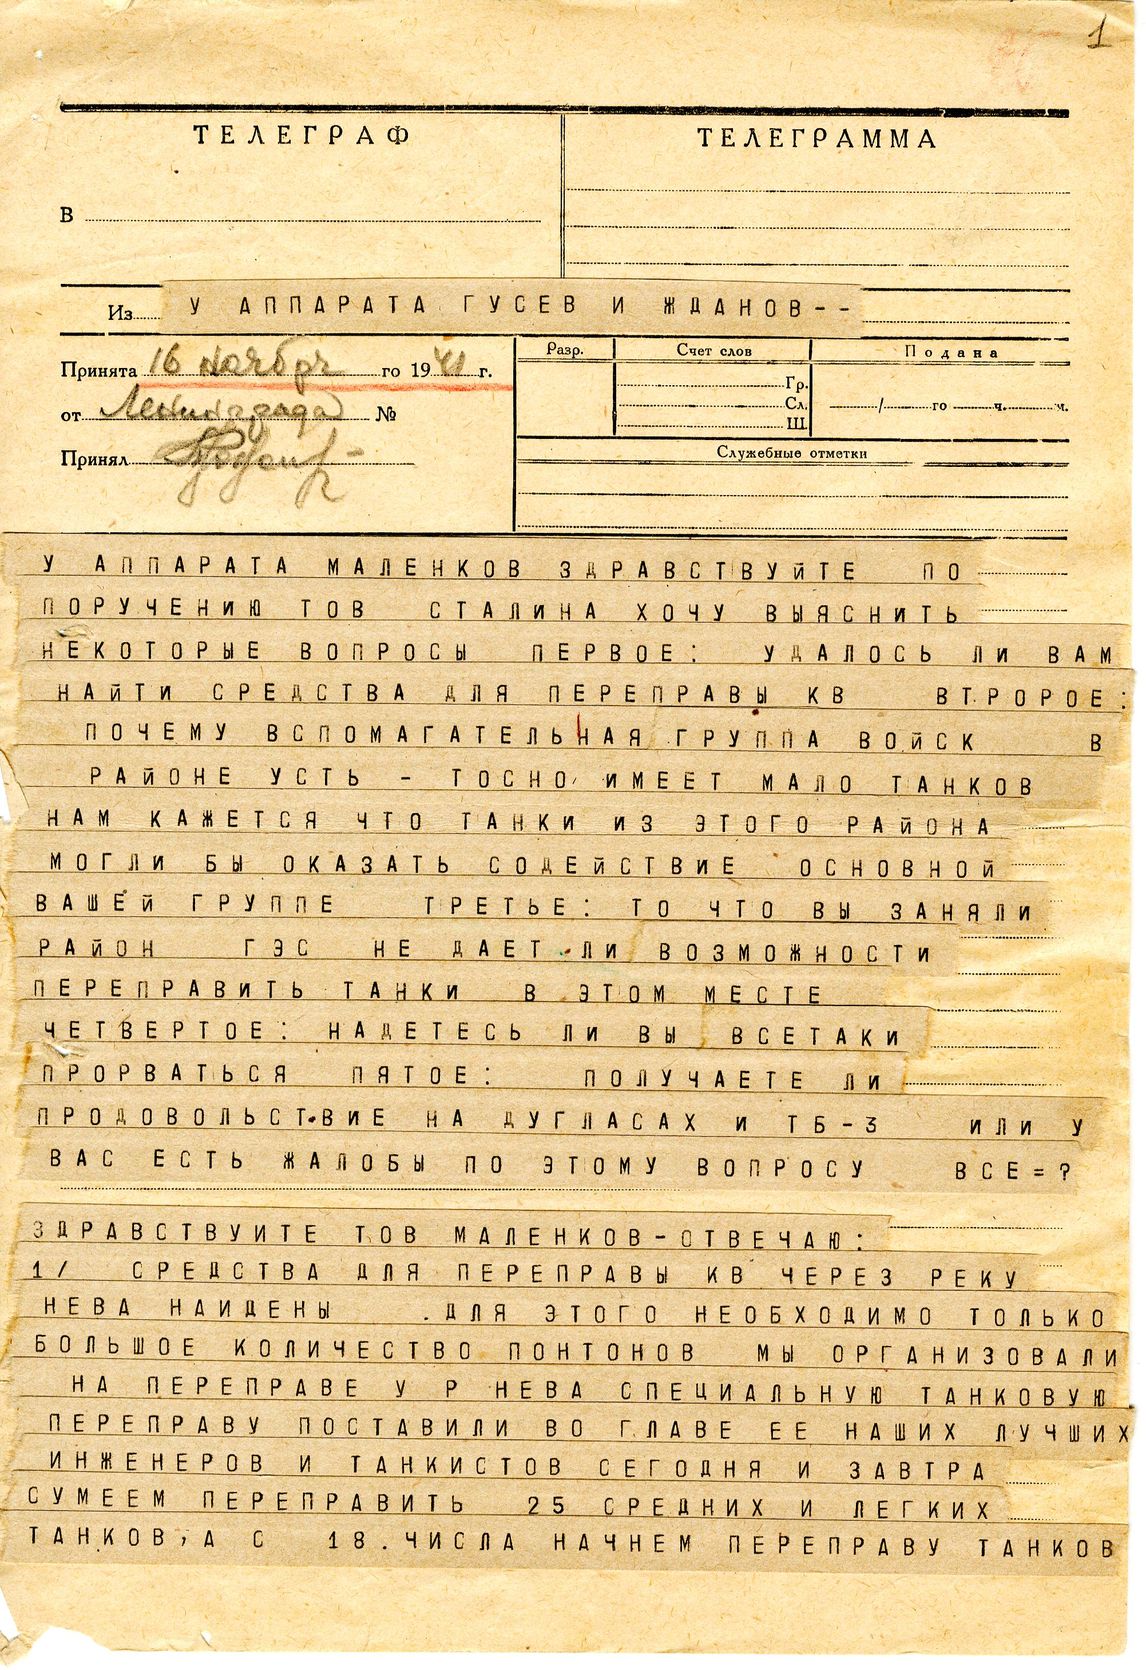 1
ТЕЛЕГРАФ
ТЕЛЕГРАММА
В
Из
У АППАРАТА ГУСЕВ И ЖДАНОВ--
Принята 16 ноября го 1941 г.
от Ленинграда №
Принял
Разр.
Счет слов
Подана
Гр.
Сл.
Ш.
/ го ч. м.
Служебные отметки
У АППАРАТА МАЛЕНКОВ ЗДРАВСТВУЙТЕ ПО
ПОРУЧЕНИЮ ТОВ СТАЛИНА ХОЧУ ВЫЯСНИТЬ
НЕКОТОРЫЕ ВОПРОСЫ ПЕРВОЕ: УДАЛОСЬ ЛИ ВАМ
НАЙТИ СРЕДСТВА ДЛЯ ПЕРЕПРАВЫ КВ ВТРОРОЕ:
ПОЧЕМУ ВСПОМАГАТЕЛЬНАЯ ГРУППА ВОЙСК В
РАЙОНЕ УСТЬ - ТОСНО ИМЕЕТ МАЛО ТАНКОВ
НАМ КАЖЕТСЯ ЧТО ТАНКИ ИЗ ЭТОГО РАЙОНА
МОГЛИ БЫ ОКАЗАТЬ СОДЕЙСТВИЕ ОСНОВНОЙ
ВАШЕЙ ГРУППЕ ТРЕТЬЕ: ТО ЧТО ВЫ ЗАНЯЛИ
РАЙОН ГЭС НЕ ДАЕТ ЛИ ВОЗМОЖНОСТИ
ПЕРЕПРАВИТЬ ТАНКИ В ЭТОМ МЕСТЕ
ЧЕТВЕРТОЕ: НАДЕТЕСЬ ЛИ ВЫ ВСЕТАКИ
ПРОРВАТЬСЯ ПЯТОЕ: ПОЛУЧАЕТЕ ЛИ
ПРОДОВОЛЬСТВИЕ НА ДУГЛАСАХ И ТБ-3 ИЛИ У
ВАС ЕСТЬ ЖАЛОБЫ ПО ЭТОМУ ВОПРОСУ ВСЕ=?
ЗДРАВСТВУИТЕ ТОВ МАЛЕНКОВ-ОТВЕЧАЮ:
1/ СРЕДСТВА ДЛЯ ПЕРЕПРАВЫ КВ ЧЕРЕЗ РЕКУ
НЕВА НАИДЕНЫ .ДЛЯ ЭТОГО НЕОБХОДИМО ТОЛЬКО
БОЛЬШОЕ КОЛИЧЕСТВО ПОНТОНОВ МЫ ОРГАНИЗОВАЛИ
НА ПЕРЕПРАВЕ У Р НЕВА СПЕЦИАЛЬНУЮ ТАНКОВУЮ
ПЕРЕПРАВУ ПОСТАВИЛИ ВО ГЛАВЕ ЕЕ НАШИХ ЛУЧШИХ
ИНЖЕНЕРОВ И ТАНКИСТОВ СЕГОДНЯ И ЗАВТРА
СУМЕЕМ ПЕРЕПРАВИТЬ 25 СРЕДНИХ И ЛЕГКИХ
ТАНКОВ, А С 18.ЧИСЛА НАЧНЕМ ПЕРЕПРАВУ ТАНКОВ